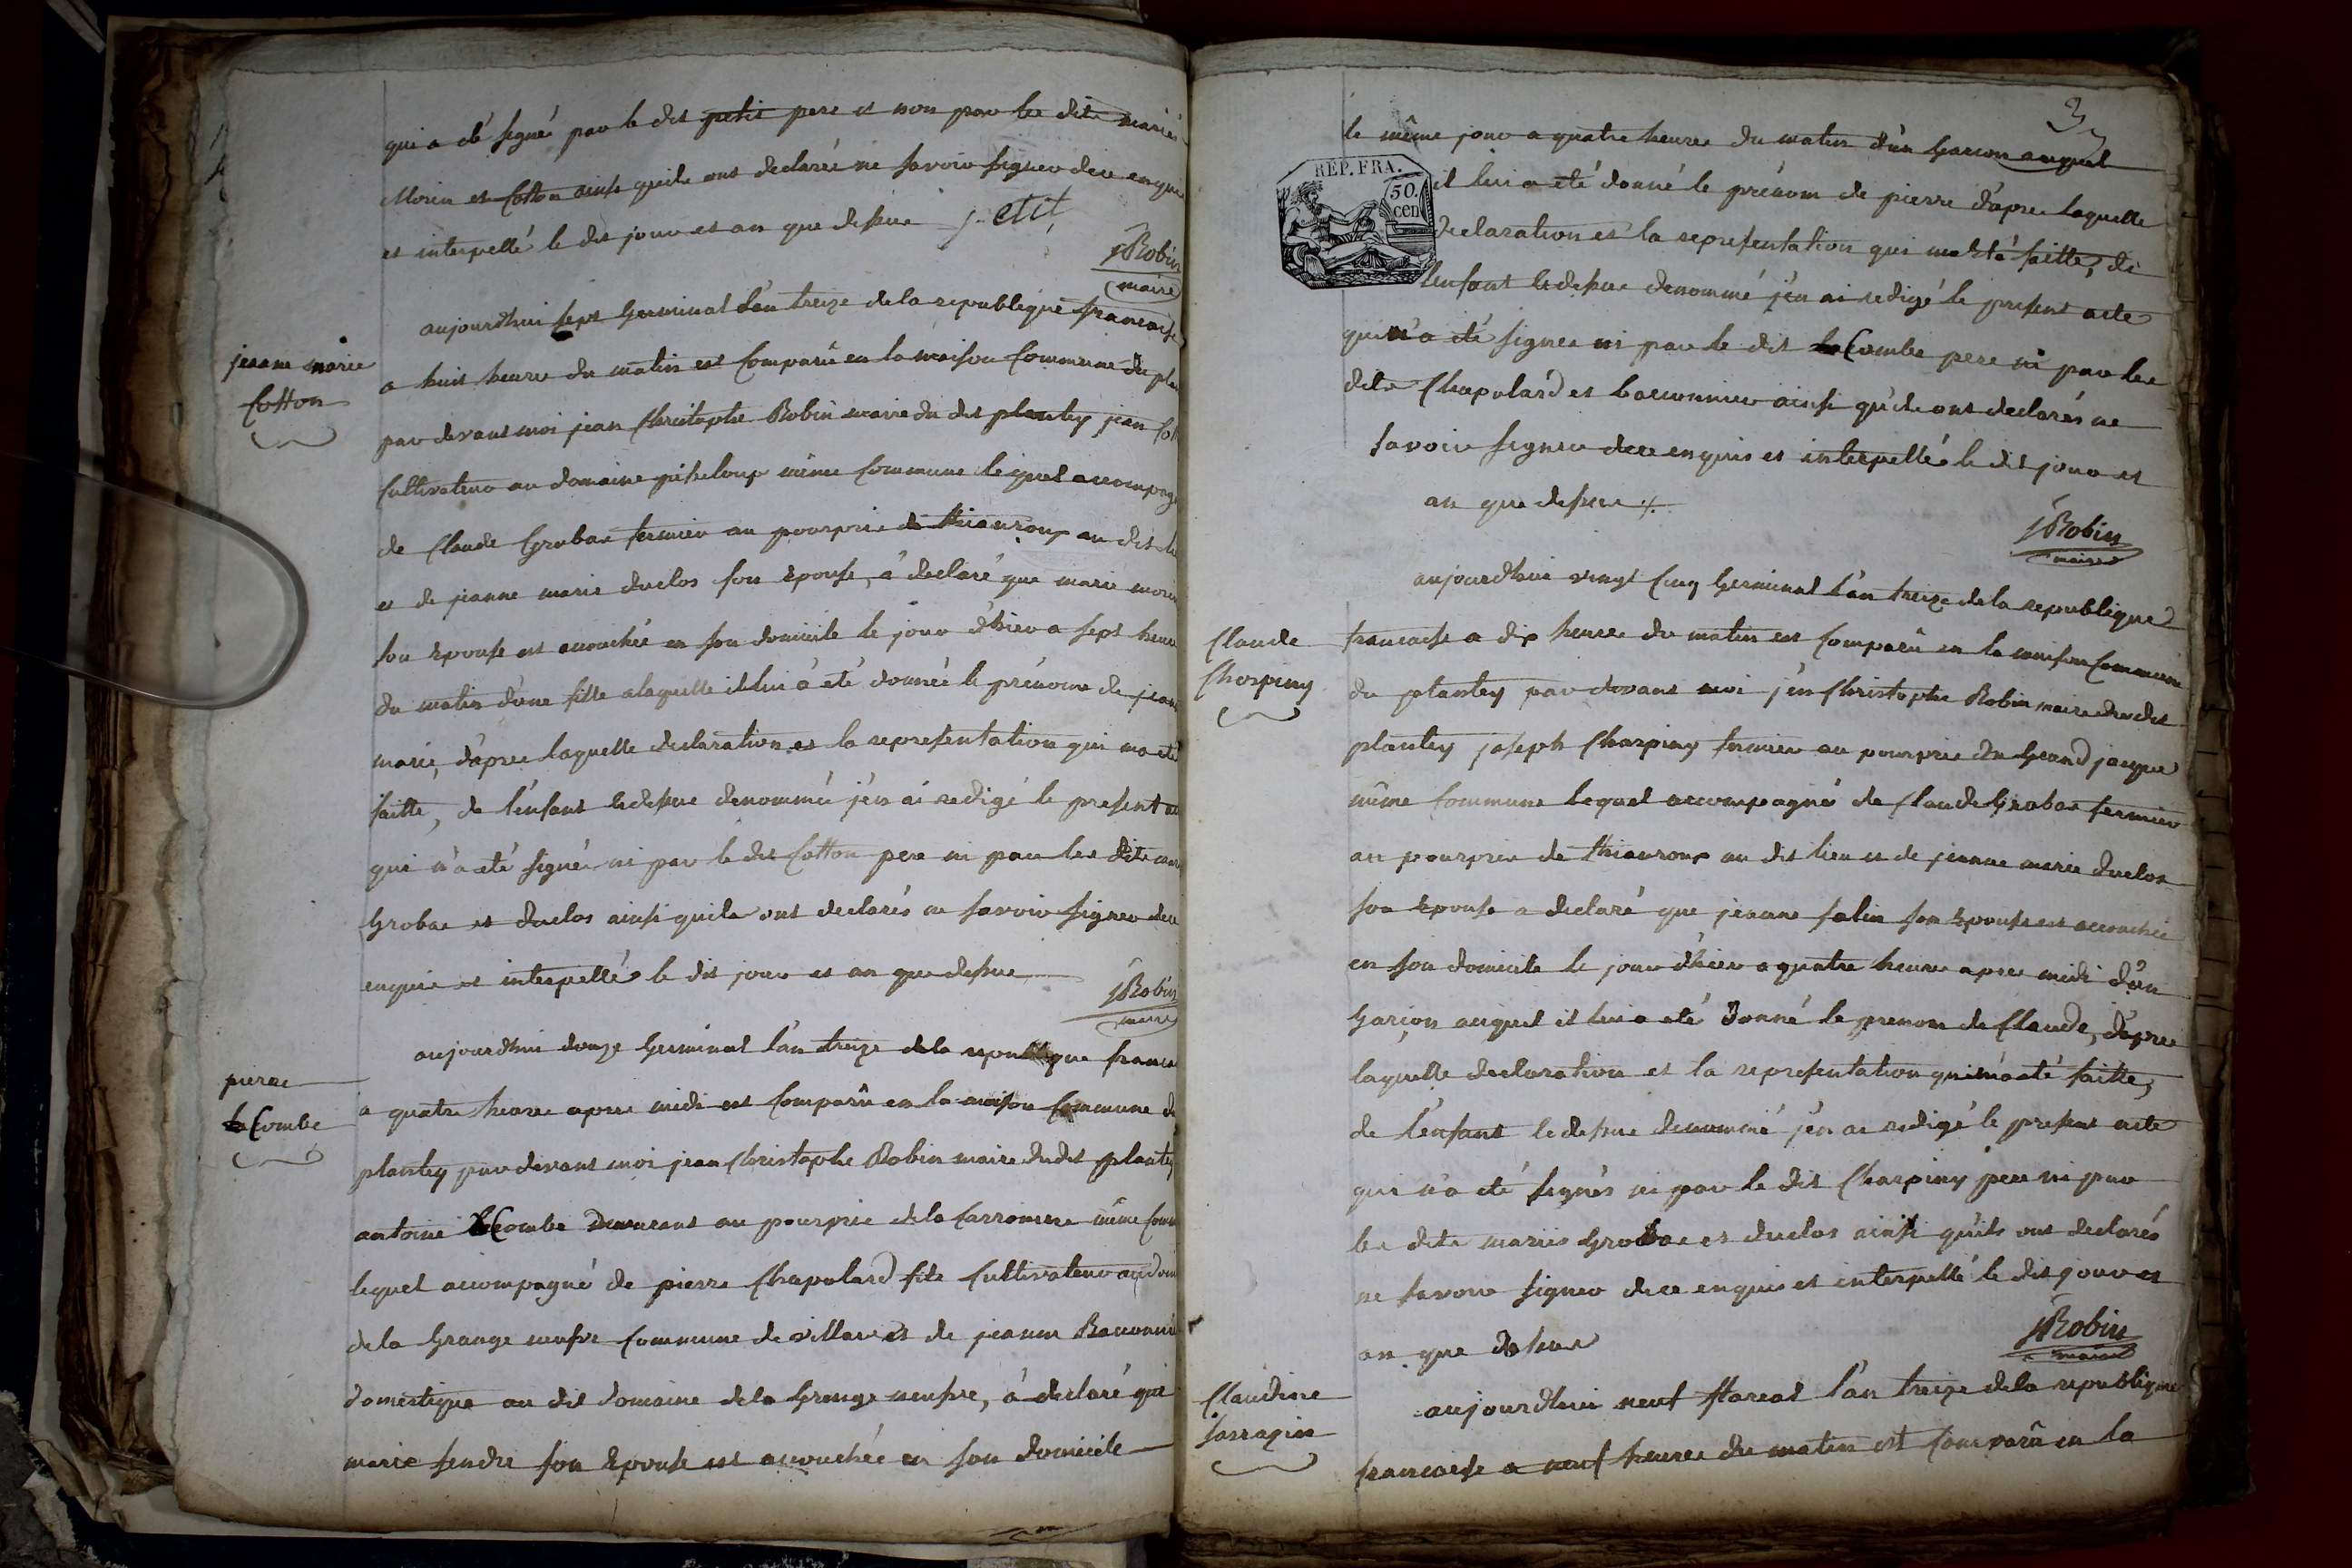 qui a été signé par le dit petit pere et non par les dits mariés
Morin et Cotton ainsi quils ont declarée ne savoir signer dece enquis
et interpellé le dit jour et an que dessus petit
JRobin
maire
jeanne marie
Cotton
aujourdhui sept Germinal l'an treize de la republique francaise
a huit heures du matin est Comparû en la maison Commune du plan
par devant moi jean Christophe Robin maire du dit plantey jean Cott
Cultivateur au domaine pisseloup même Commune lequel accompag
de Claude Grobas fermier au pourprie de thiauroux au dit lie
et de jeanne marie duclos son Epouse, à declaré que marie morin
son Epouse est accouchée en son domicile le jour d'hier a sept heures
du matin d'une fille a laquelle il lui à été donnée le prénom de jeanne
marie, d'apres laquelle declaration et la representation qui ma été
faitte, de l'enfant ledessus denommé j'en ai redigé le present ac
qui n'a été signé ni par le dit Cotton pere ni par les dits mar
Grobas et duclos ainsi quils ont declarés ne savoir signer dece
enquis et interpellés le dit jour et an que dessus
JRobin
maire
pierre
LaCombe
aujourdhui douze Germinal l'an treize de la republique francai
a quatre heures apres midi est Comparû en la maison Commune du
plantey par devant moi jean Christophe Robin maire dudit plantey
antoine LaCombe demeurant au pourprie de la Carronniere même Comm
lequel accompagné de pierre Chapuland fils Cultivateur au dom
de la Grange neufve Commune de villars et de jeanne Baconnie
domestique au dit domaine de la Grange neufve, à declaré que
marie fendre son Epouse est accouchée en son domicile
3
le même jour a quatre heures du matin d'un Garcon auquel
REP. FRA.
50.
cen
il lui a été donné le prénom de pierre d'apres laquelle
declaration et la representation qui ma été faitte, de
lenfant ledessus denommé j'en ai redigé le present acte
qui n'a été signée ni par le dit LaCombe pere ni par les
dits Chapuland et baconnier ainsi quils ont declarés ne
savoir signer dece enquis et interpellés le dit jour et
an que dessus
JRobin
maire
Claude
Charpiny
aujourdhui vingt Cinq Germinal l'an treize de la republique
francaise a dix heures du matin est Comparû en la maison Commune
du plantey par devant moi j'en Christophe Robin maire du dit
plantey joseph Charpiny fermier au pourprie du Grand jacques
même Commune lequel accompagné de Claude Grobas fermier
au pourprie de thiauroux au dit lieu et de jeanne marie duclos
son Epouse a declaré que jeanne falin son Epouse est accouchée
en son domicile le jour d'hier a quatre heures apres midi d'un
Garçon auquel il lui a été donné le prenom de Claude, d'apres
laquelle declaration et la representation qui m'a été faitte,
de l'enfant ledessus denommé j'en ai redigé le present acte
qui n'a été signés ni par le dit Charpiny pere ni par
les dits mariés Grobas et duclos ainsi quils ont declarés
ne savoir signer dece enquis et interpellé le dit jour et
an que dessus
JRobin
maire
Claudine
sarragin
aujourdhui neuf floreal l'an treize de la republique
francaise a neuf heures du matin est Comparû en la